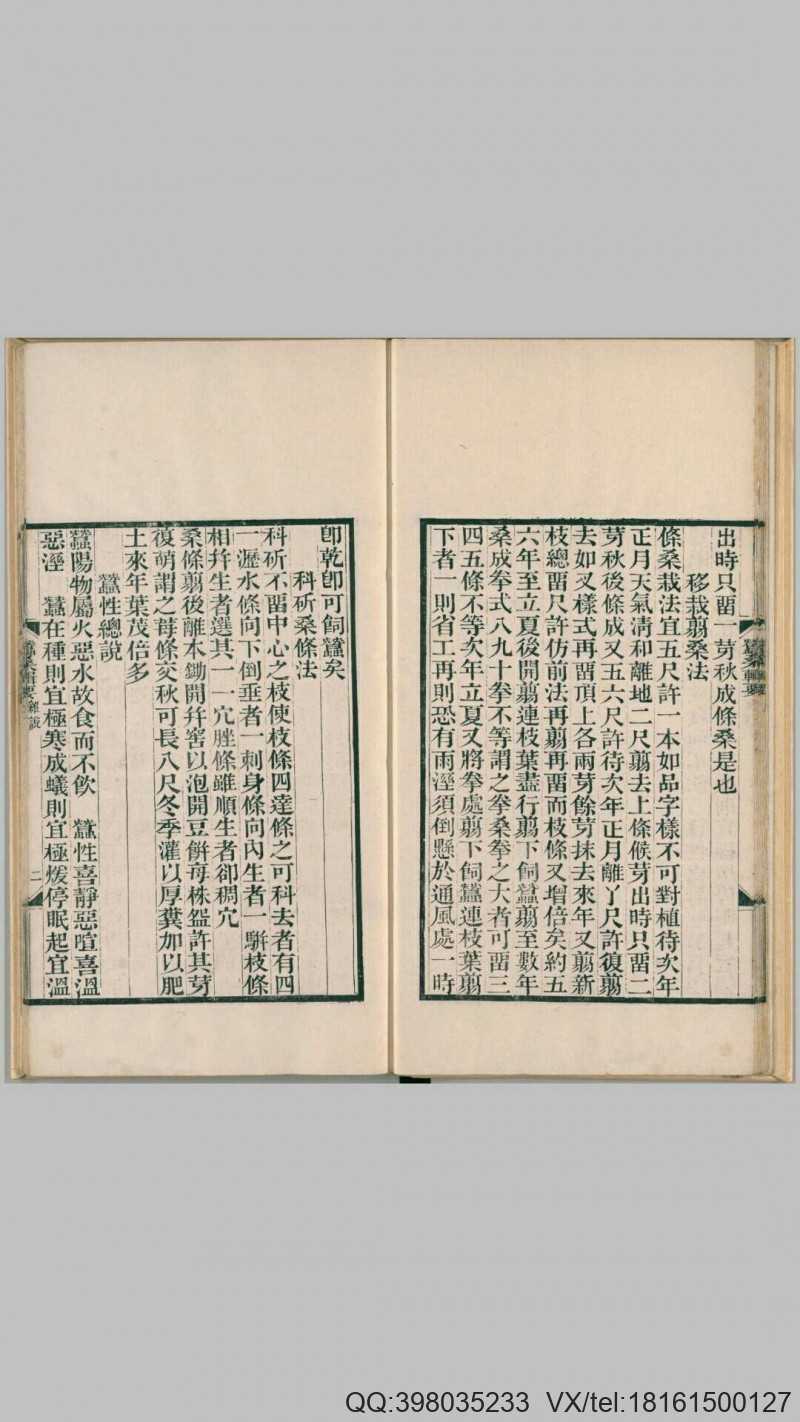 出時只畱一芽秋成條桑是也
移栽翦桑法
條桑栽法宜五尺許一本如品字樣不可對植待次年
正月天氣淸和離地二尺翦去上條候芽出時只畱二
芽秋後條成又五六尺許待次年正月離丫尺許復翦
去如叉樣式再畱頂上各兩芽餘芽抹去來年又翦新
枝總畱尺許仿前法再翦再畱而枝條又增倍矣約五
六年至立夏後開翦連枝葉盡行翦下飼蠶翦至數年
桑成拳式八九十拳不等謂之拳桑拳之大者可畱三
四五條不等次年立夏又將拳處翦下飼蠶連枝葉翦
下者一則省工再則恐有雨溼須倒懸於通風處一時
卽乾卽可飼蠶矣
科斫桑條法
科斫不畱中心之枝使枝條四達條之可科去者有四
一瀝水條向下倒垂者一刺身條向內生者一騈枝條
相幷生者選其一一宂脞條雖順生者卻稠宂
桑條翦後離本鋤開幷窖以泡開豆餅每株盌許其芽
復萌謂之苺條交秋可長八尺冬季灌以厚糞加以肥
土來年葉茂倍多
蠶性總說
蠶陽物屬火惡水故食而不飮　蠶性喜靜惡喧喜溫
惡溼　蠶在種則宜極寒成蟻則宜極煖停眠起宜溫
雜說
二
QQ:398035233 VX/tel:18161500127